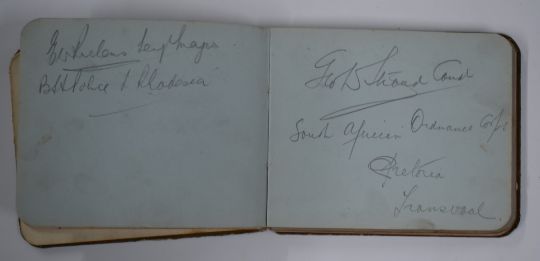 Sergt Major
B.S.A Police S. Rhodesia
Geo D Stroud Cond
South African Ordnance Corps
Pretoria
Transvaal.